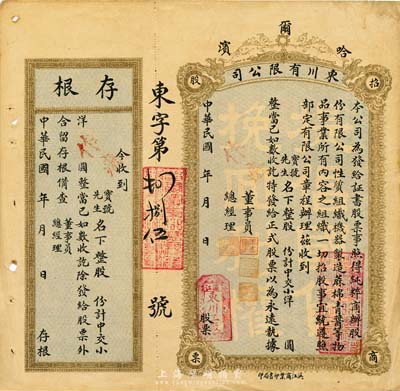 哈爾濱
東川有限公司
招股
商票
本公司為發給証書股票事照得純粹商辦股
份有限公司性質組織機器製造麻棉膏醬等物
品事業所有內容之組織一切招股事宜統遵照
部定有限公司章程辦理茲收到
寶號
先生
名下整股 份計中交小洋 圓
整當已如數收訖特發給正式股票以為永遠執據
董事員
總經理
中華民國 年 月 日
股票
濱江商業印書局印
東字第 捌伍 號
存根
今收到
寶號
先生
名下整股 份計中交小
洋 圓整當已如數收訖除發給股票外
合留存根備查
董事員
總經理
中華民國 年 月 日
存根